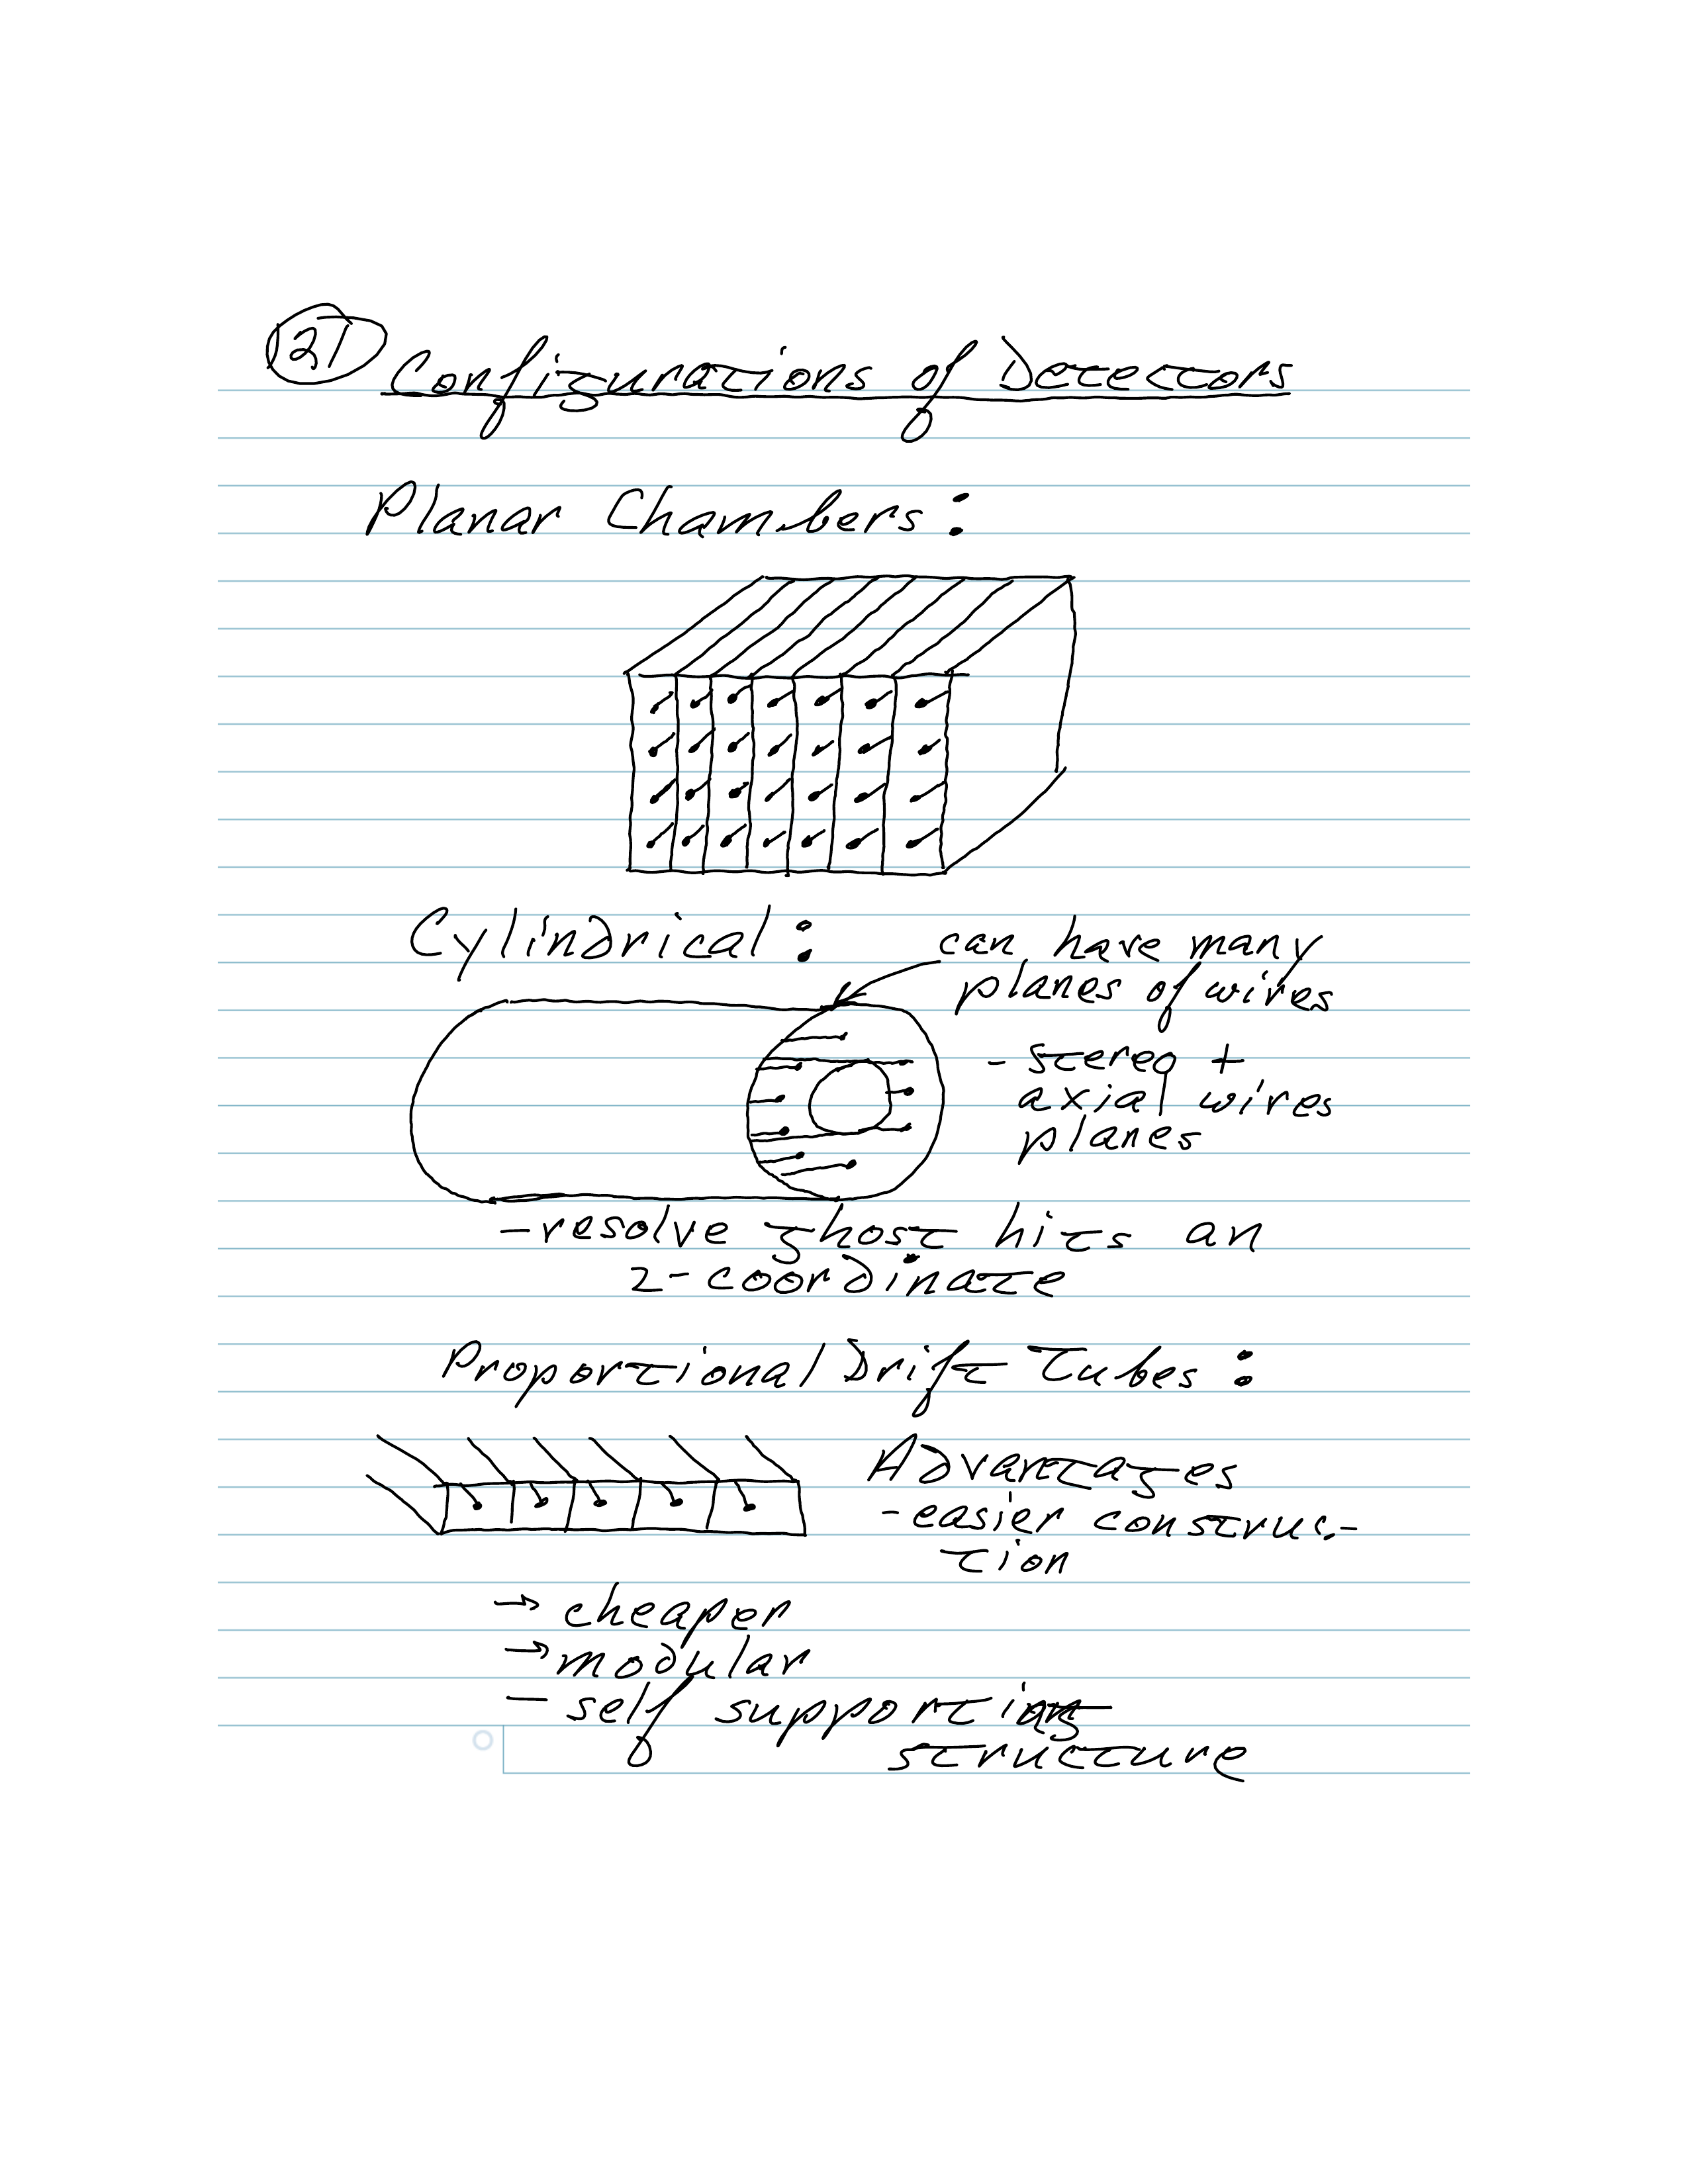 21
Configurations of Detectors
Planar Chambers:
Cylindrical:
can have many
planes of wires
- stereo +
axial wires
planes
- resolve ghost hits an
z-coordinate
Proportional Drift Tubes:
Advantages
- easier construc-
tion
→ cheaper
→ modular
- self supporting
structure